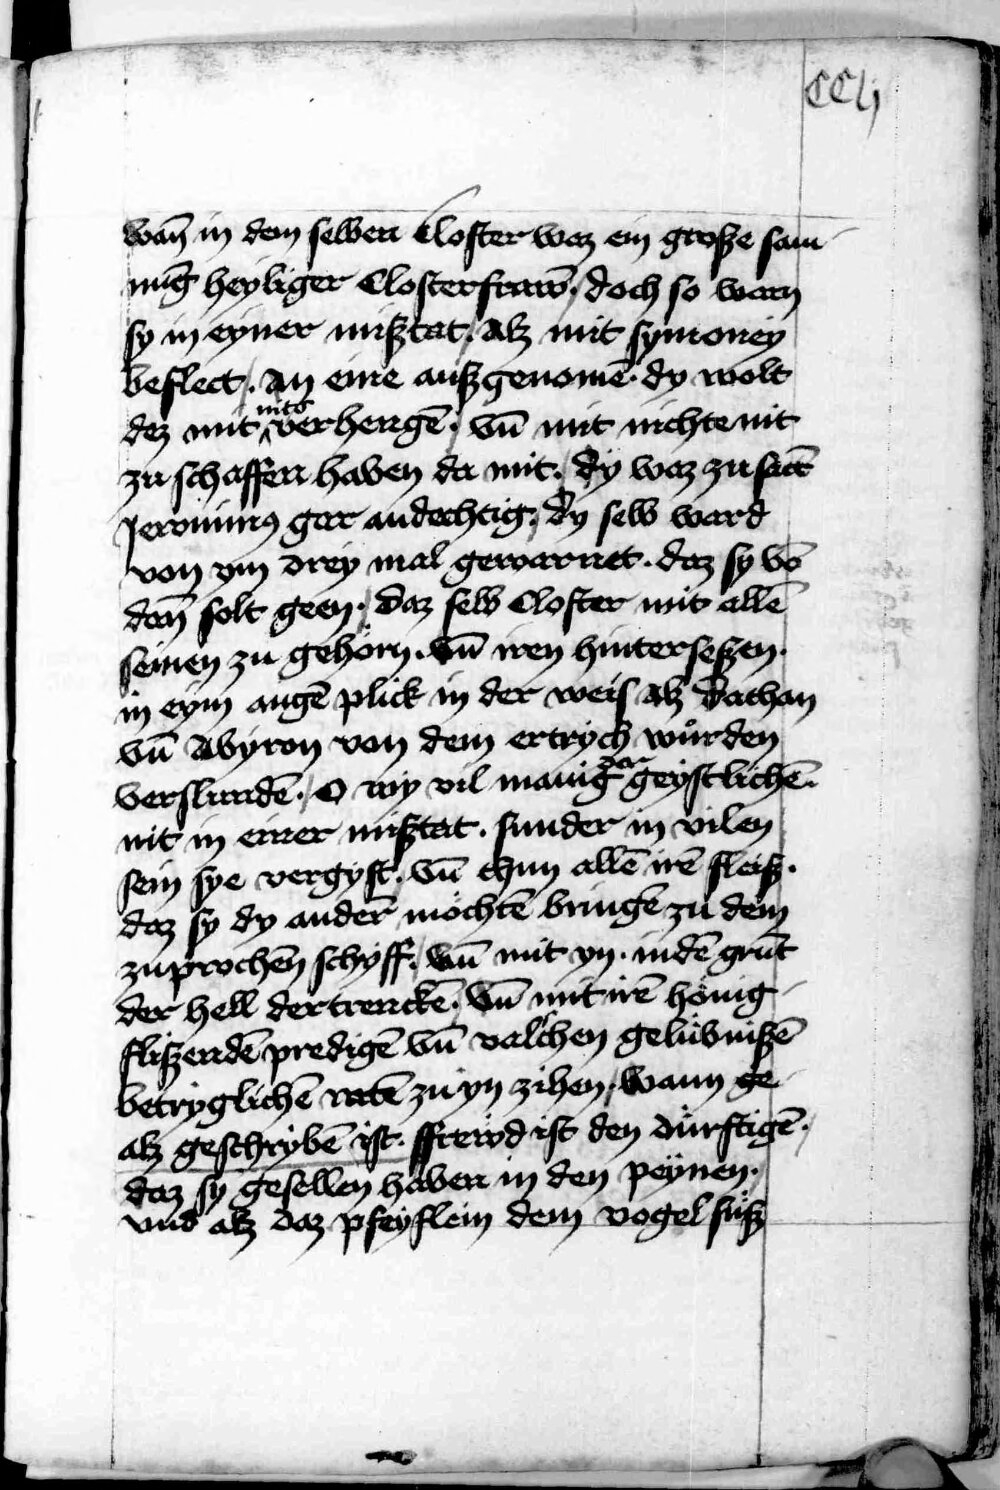 CClj
wan̄ in dem selben Closter waz ein große sam
nūg heyliger Closterfraw̄. doch so warn
sy in eyner mißtat. Alz mit symoney
beflect. An eine außgenomē. dy wolt
dez mit nits verhengē. vn̄ mit nichte nit
zu schaffen haben da mit. dy waz zu sāt
Jeronimꝰ gar andechtig. dy selb ward
von ym drey mal gewarnet. daz sy vō
dan̄ solt geen. daz selb Closter mit allē
seinen zu gehörn. vn̄ iren hinterseßen.
in eym augē plick in der weis alz dathan
vn̄ Abyron von dem ertrych würden
verslundē. O wy vil manig der geystlichē.
nit in einer mißtat. sunder in vilen
sein sye vergyft. vn̄ thun allē irē fleiß.
daz sy dy ander̄ möchtē bringē zu dem
zuprochen̄ schyff. vn̄ mit yn. in dē grūt
der hell dertrenckē. vn̄ mit irē hönig
flißendē predigē vn̄ valschen gelübnißē
betryglichē rātē zu yn zihen. wann ge
alz geschrybē ist. ffrewd ist den dürftigē.
daz sy gesellen haben in den peynen.
vnd alz daz pfeyflein dem vogel süß